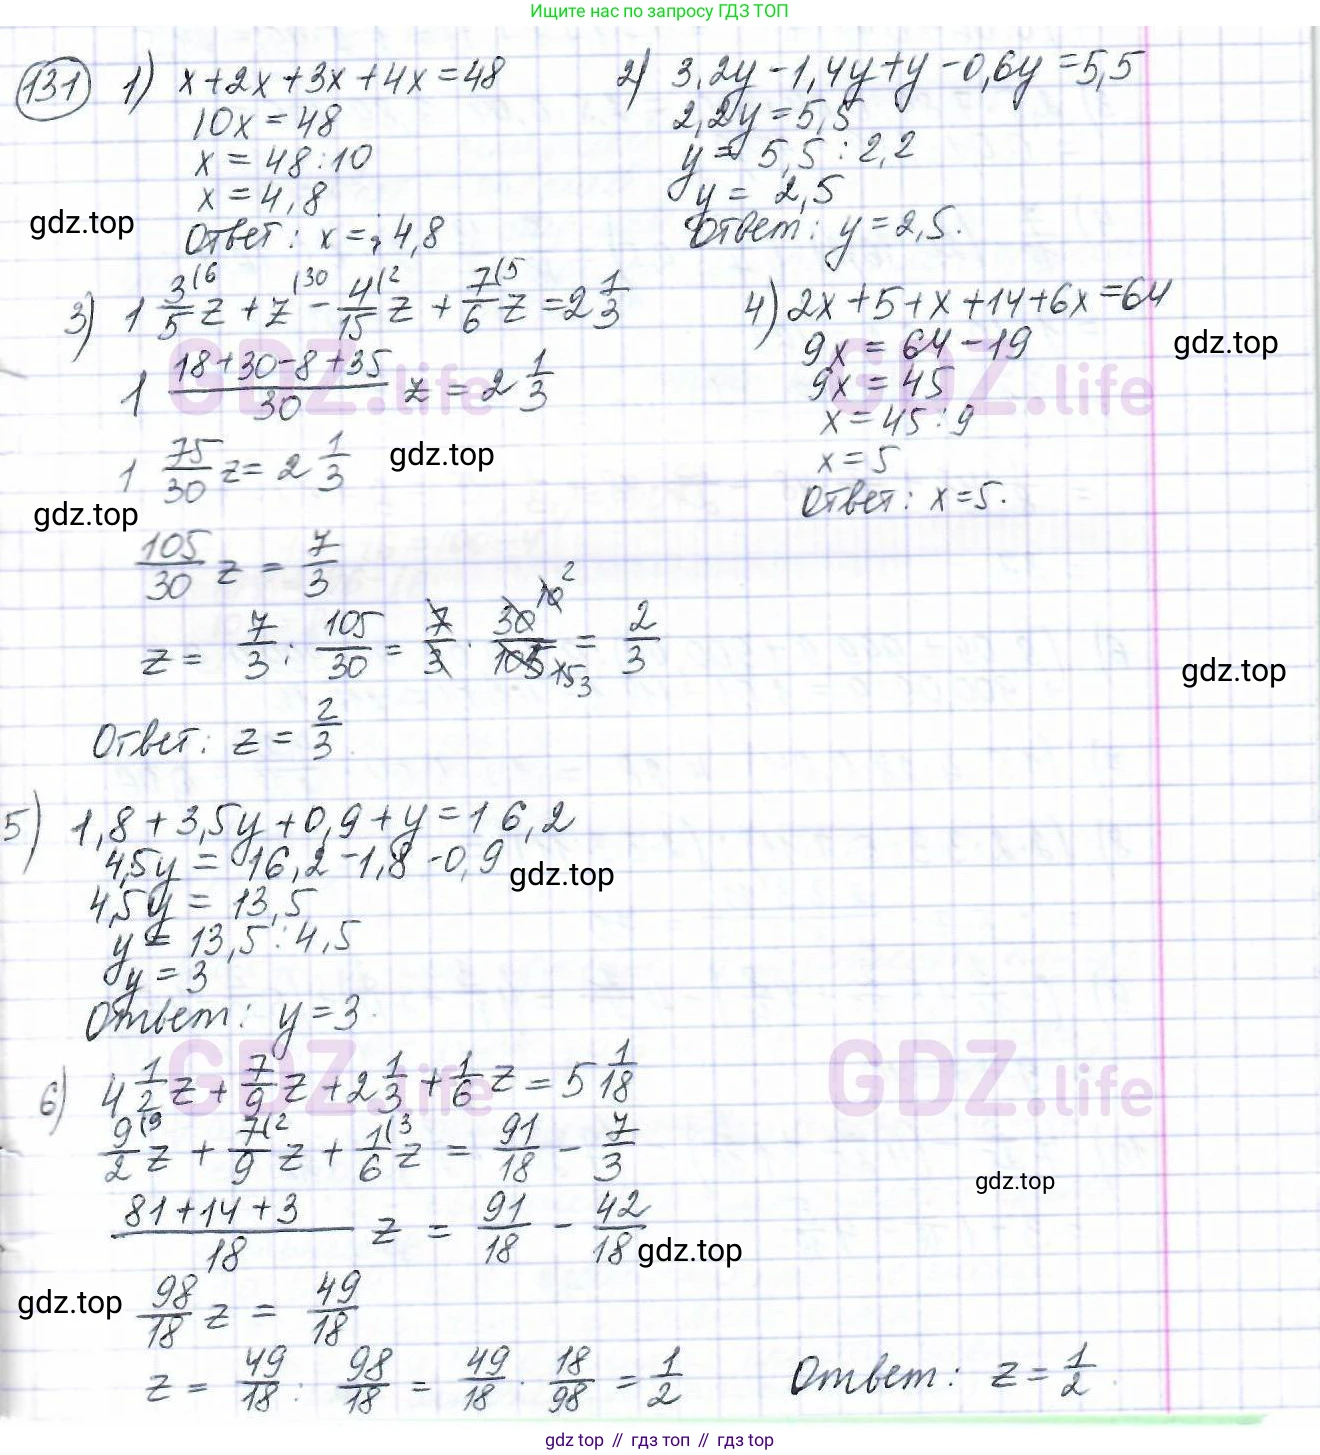 Ищите нас по запросу ГДЗ ТОП
131 1) x+2x+3x+4x=48
10x=48
x=48:10
x=4,8
gdz.top
Ответ: x=4,8
2) 3,2y-1,4y+y-0,6y=5,5
2,2y=5,5
y= 5,5:2,2
y= 2,5
gdz.top
Ответ: y=2,5.
3) 1 3/5(6 z + z(30 - 4/15(2 z + 7/6(5 z = 2 1/3
1 18+30-8+35/30 z = 2 1/3
1 75/30 z = 2 1/3
gdz.top
gdz.top
105/30 z = 7/3
z = 7/3 : 105/30 = 7/3 · 30 10 2/105 15 3 = 2/3
Ответ: z = 2/3.
4) 2x+5+x+14+6x=64
9x = 64-19
gdz.top
9x = 45
x=45:9
x=5
Ответ: x=5.
GDZ.life
GDZ.life
gdz.top
5) 1,8+3,5y+0,9+y=16,2
4,5y = 16,2-1,8-0,9
gdz.top
4,5y = 13,5
y= 13,5:4,5
y=3
Ответ: y=3.
GDZ.life
GDZ.life
6) 4 1/2 z + 7/9 z + 2 1/3 + 1/6 z = 5 1/18
9/2(9 z + 7/9(2 z + 1/6(3 z = 91/18 - 7/3
gdz.top
81+14+3/18 z = 91/18 - 42/18
gdz.top
gdz.top
98/18 z = 49/18
z = 49/18 : 98/18 = 49/18 · 18/98 = 1/2
Ответ: z = 1/2.
gdz top // гдз топ // gdz top